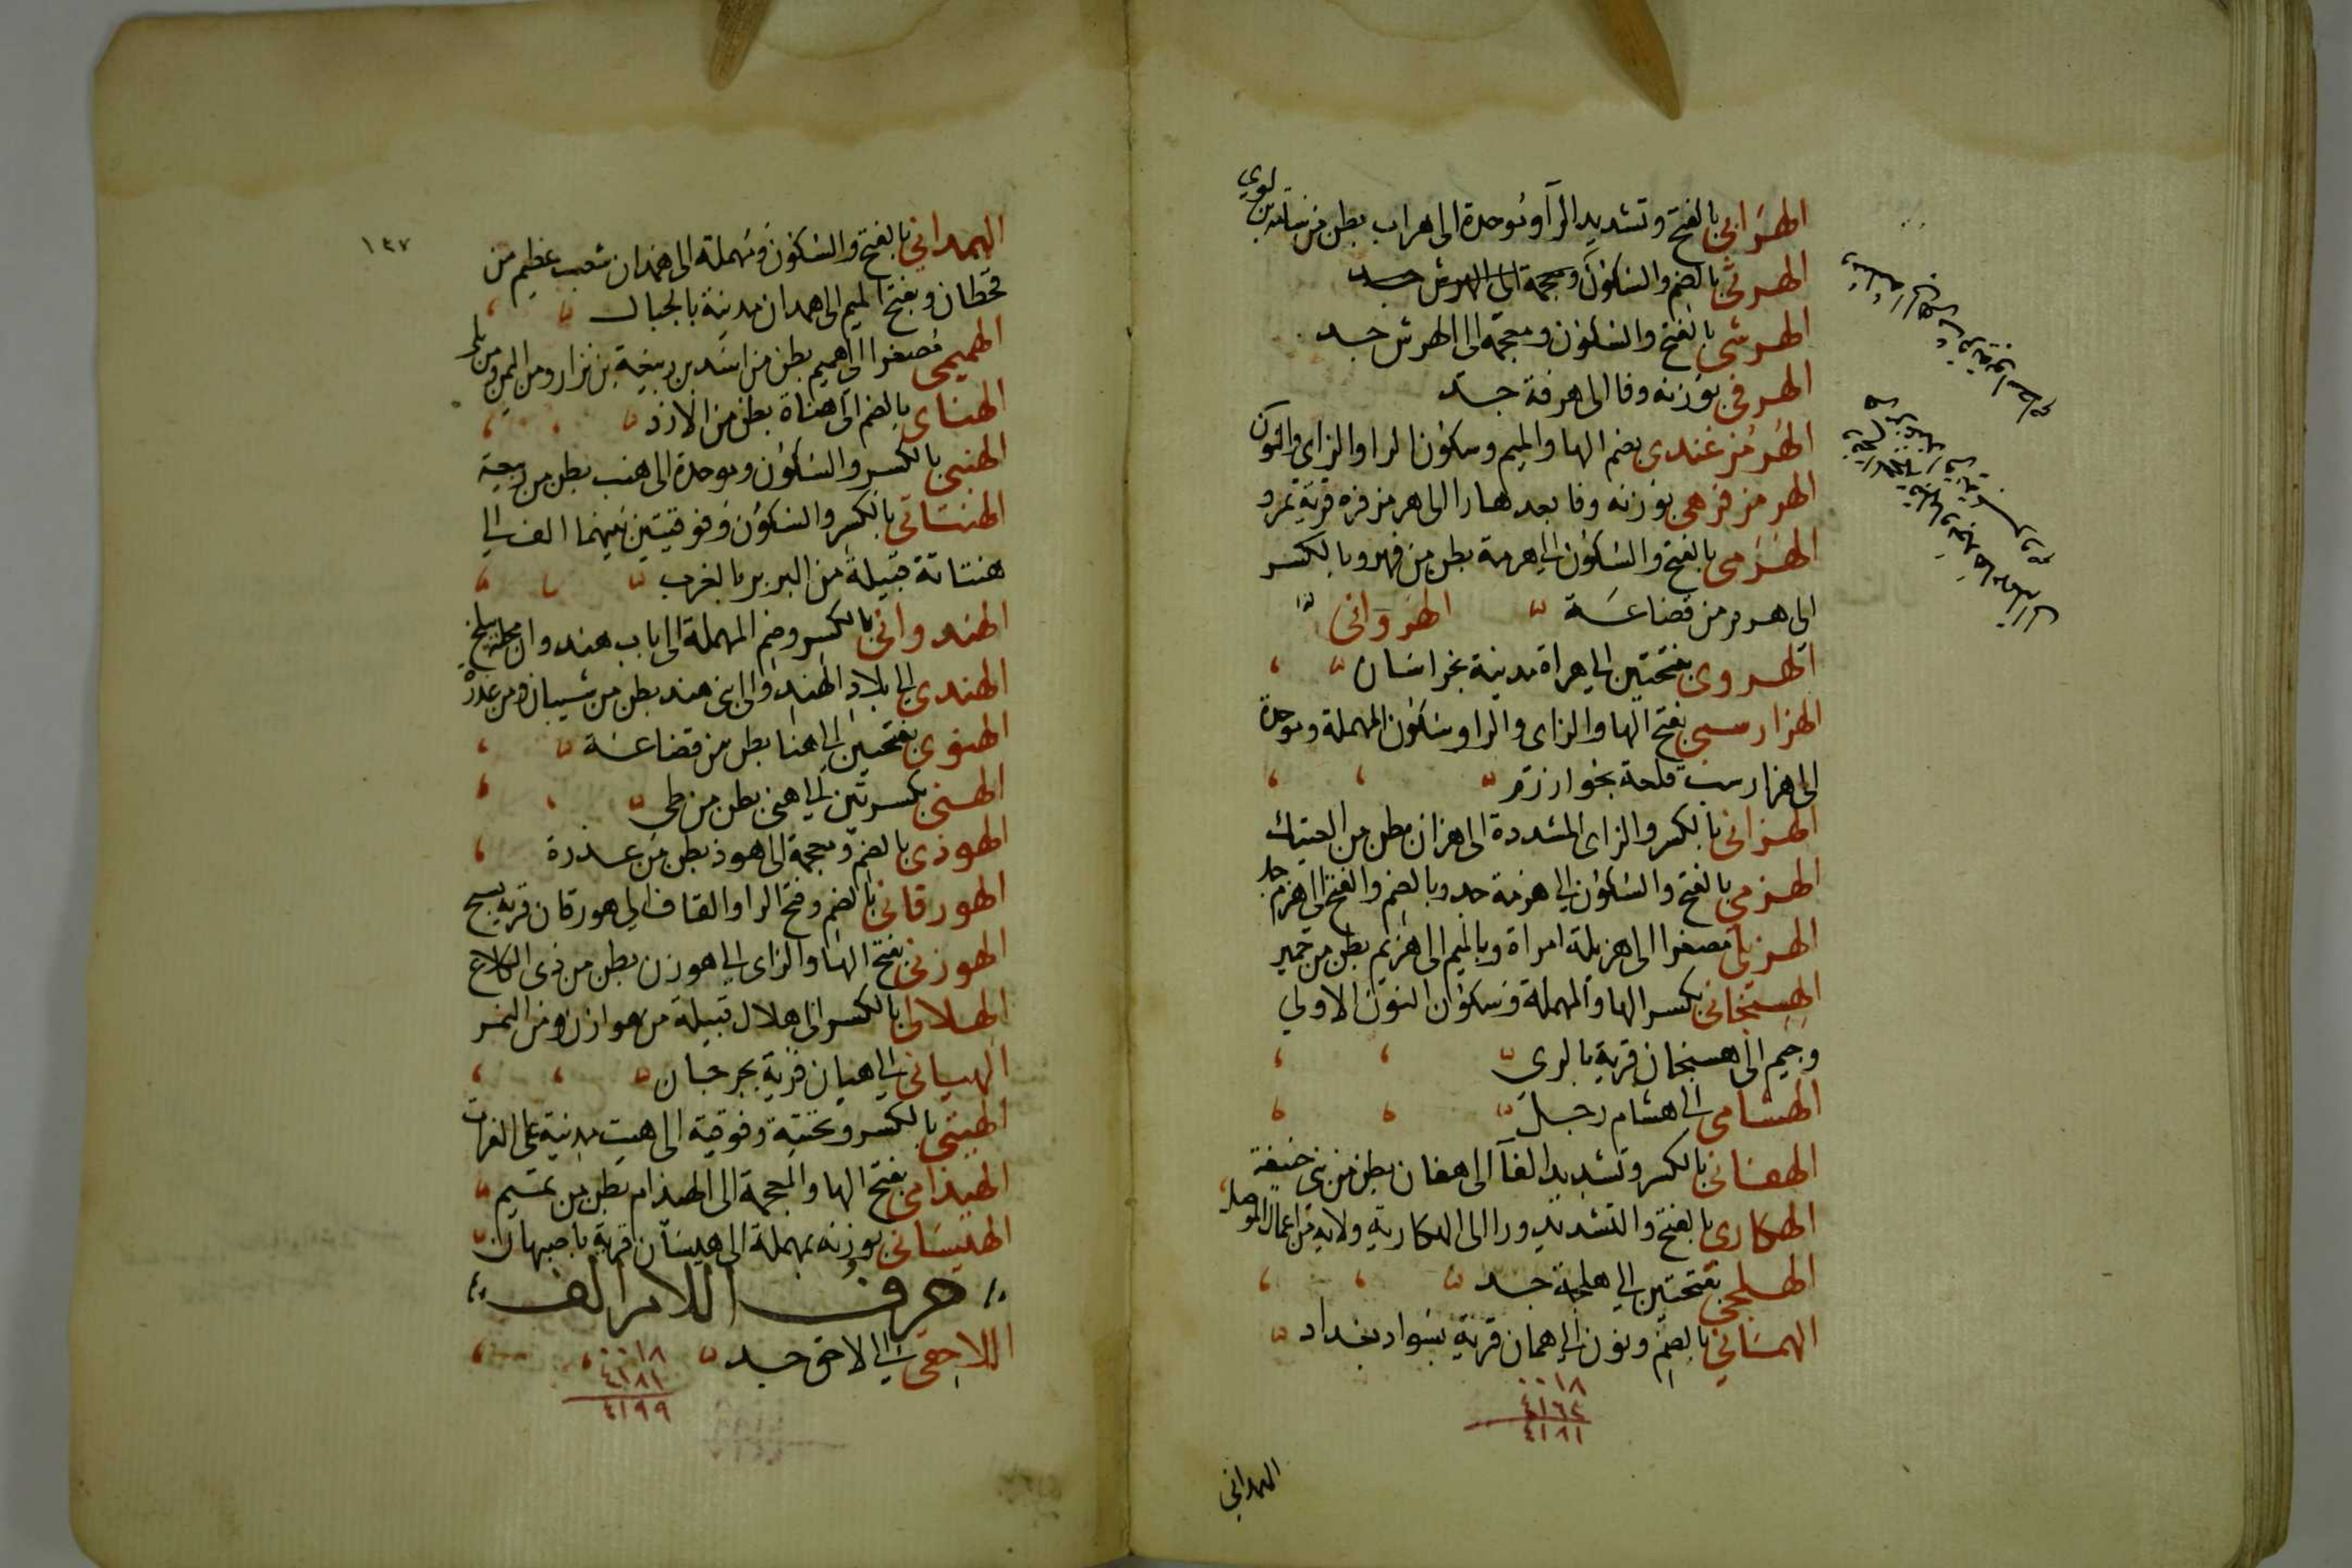 الهرابي بالفتح وتشديد الرا وموحدة الى هراب بطن من سامة بن لوي
الهرثى بالضم والسكون ومعجمة الى الهرش جد
الهرشى بالفتح والسكون ومعجمة الى الهرش جد
الهرفى بوزنه وفا الى هرفة جد
الهرمزغندى بضم الها والميم وسكون الرا والزاى والنون
الهرمزفرهى بوزنه وفا بعدها را الى هرمزفره قرية بمرو
الهزمى بالفتح والسكون الى هرمة بطن من فهر وبالكسر
الى هرم من قضاعة الهروانى
الهروى بفتحتين الى هراة مدينة بخراسان
الهزارسبى بفتح الها والزاى والرا وسكون المهملة وموحدة
الى هزارسب قلعة بخوارزم
الهزانى بالكسر والزاى المشددة الى هزان بطن من العتيك
الهزمى بالفتح والسكون الى هزمة جد وبالضم والفتح الى هزم جد
الهزيلى مصغرا الى هزيلة امراة وبالميم الى هزيم بطن من حمير
الهسنجانى بكسر الها والمهملة وسكون النون الاولى
وجيم الى هسنجان قرية بالرى
الهشامى الى هشام رجل
الهفانى بالكسر وتشديد الفا الى هفان بطن من بنى حنيفة
الهكارى بالفتح والتشديد ورا الى الهكارية ولاية من اعمال الموصل
الهلجى بفتحتين الى هلجة جد
الهمانى بالضم ونون الى همان قرية بسواد بغداد
٠٠١٨
٤١٦٣
٤١٨١
الهمدانى
١٤٧
الهمدانى بالفتح والسكون ومهملة الى همدان شعب عظيم من
قحطان وبفتح الميم الى همدان مدينة بالجبال
الهميمى مصغرا الى هميم بطن من اسد بن ربيعة بن نزار ومن اليمن ومن بلى
الهناى بالضم الى هناة بطن من الازد
الهنبى بالكسر والسكون وموحدة الى هنب بطن من ربيعة
الهنتاتى بالكسر والسكون وفوقيتين بينهما الف الى
هنتاتة قبيلة من البربر بالغرب
الهندوانى بالكسر وضم المهملة الى باب هندوان محلة ببلخ
الهندى الى بلاد الهند والى ابنى هند بطن من شيبان ومن عذرة
الهنوى بفتحتين الى هنا بطن من قضاعة
الهنى بكسرتين الى هنى بطن من طى
الهوذى بالضم ومعجمة الى هوذ بطن من عذرة
الهورقانى بالضم وفتح الرا والقاف الى هورقان قرية بسنج
الهوزنى بفتح الها والزاى الى هوزن بطن من ذى الكلاع
الهلالى بالكسر الى هلال قبيلة من هوازن ومن النمر
الهيانى الى هيان قرية بجرجان
الهيتى بالكسر وتحتية وفوقية الى هيت مدينة على الفرات
الهيذامى بفتح الها والمعجمة الى الهيذام بطن من تميم
الهيسانى بوزنه بمهملة الى هيسان قرية باصبهان
حرف اللام الف
اللاحقى الى لاحق جد
٠٠١٨
٤١٨١
٤١٩٩